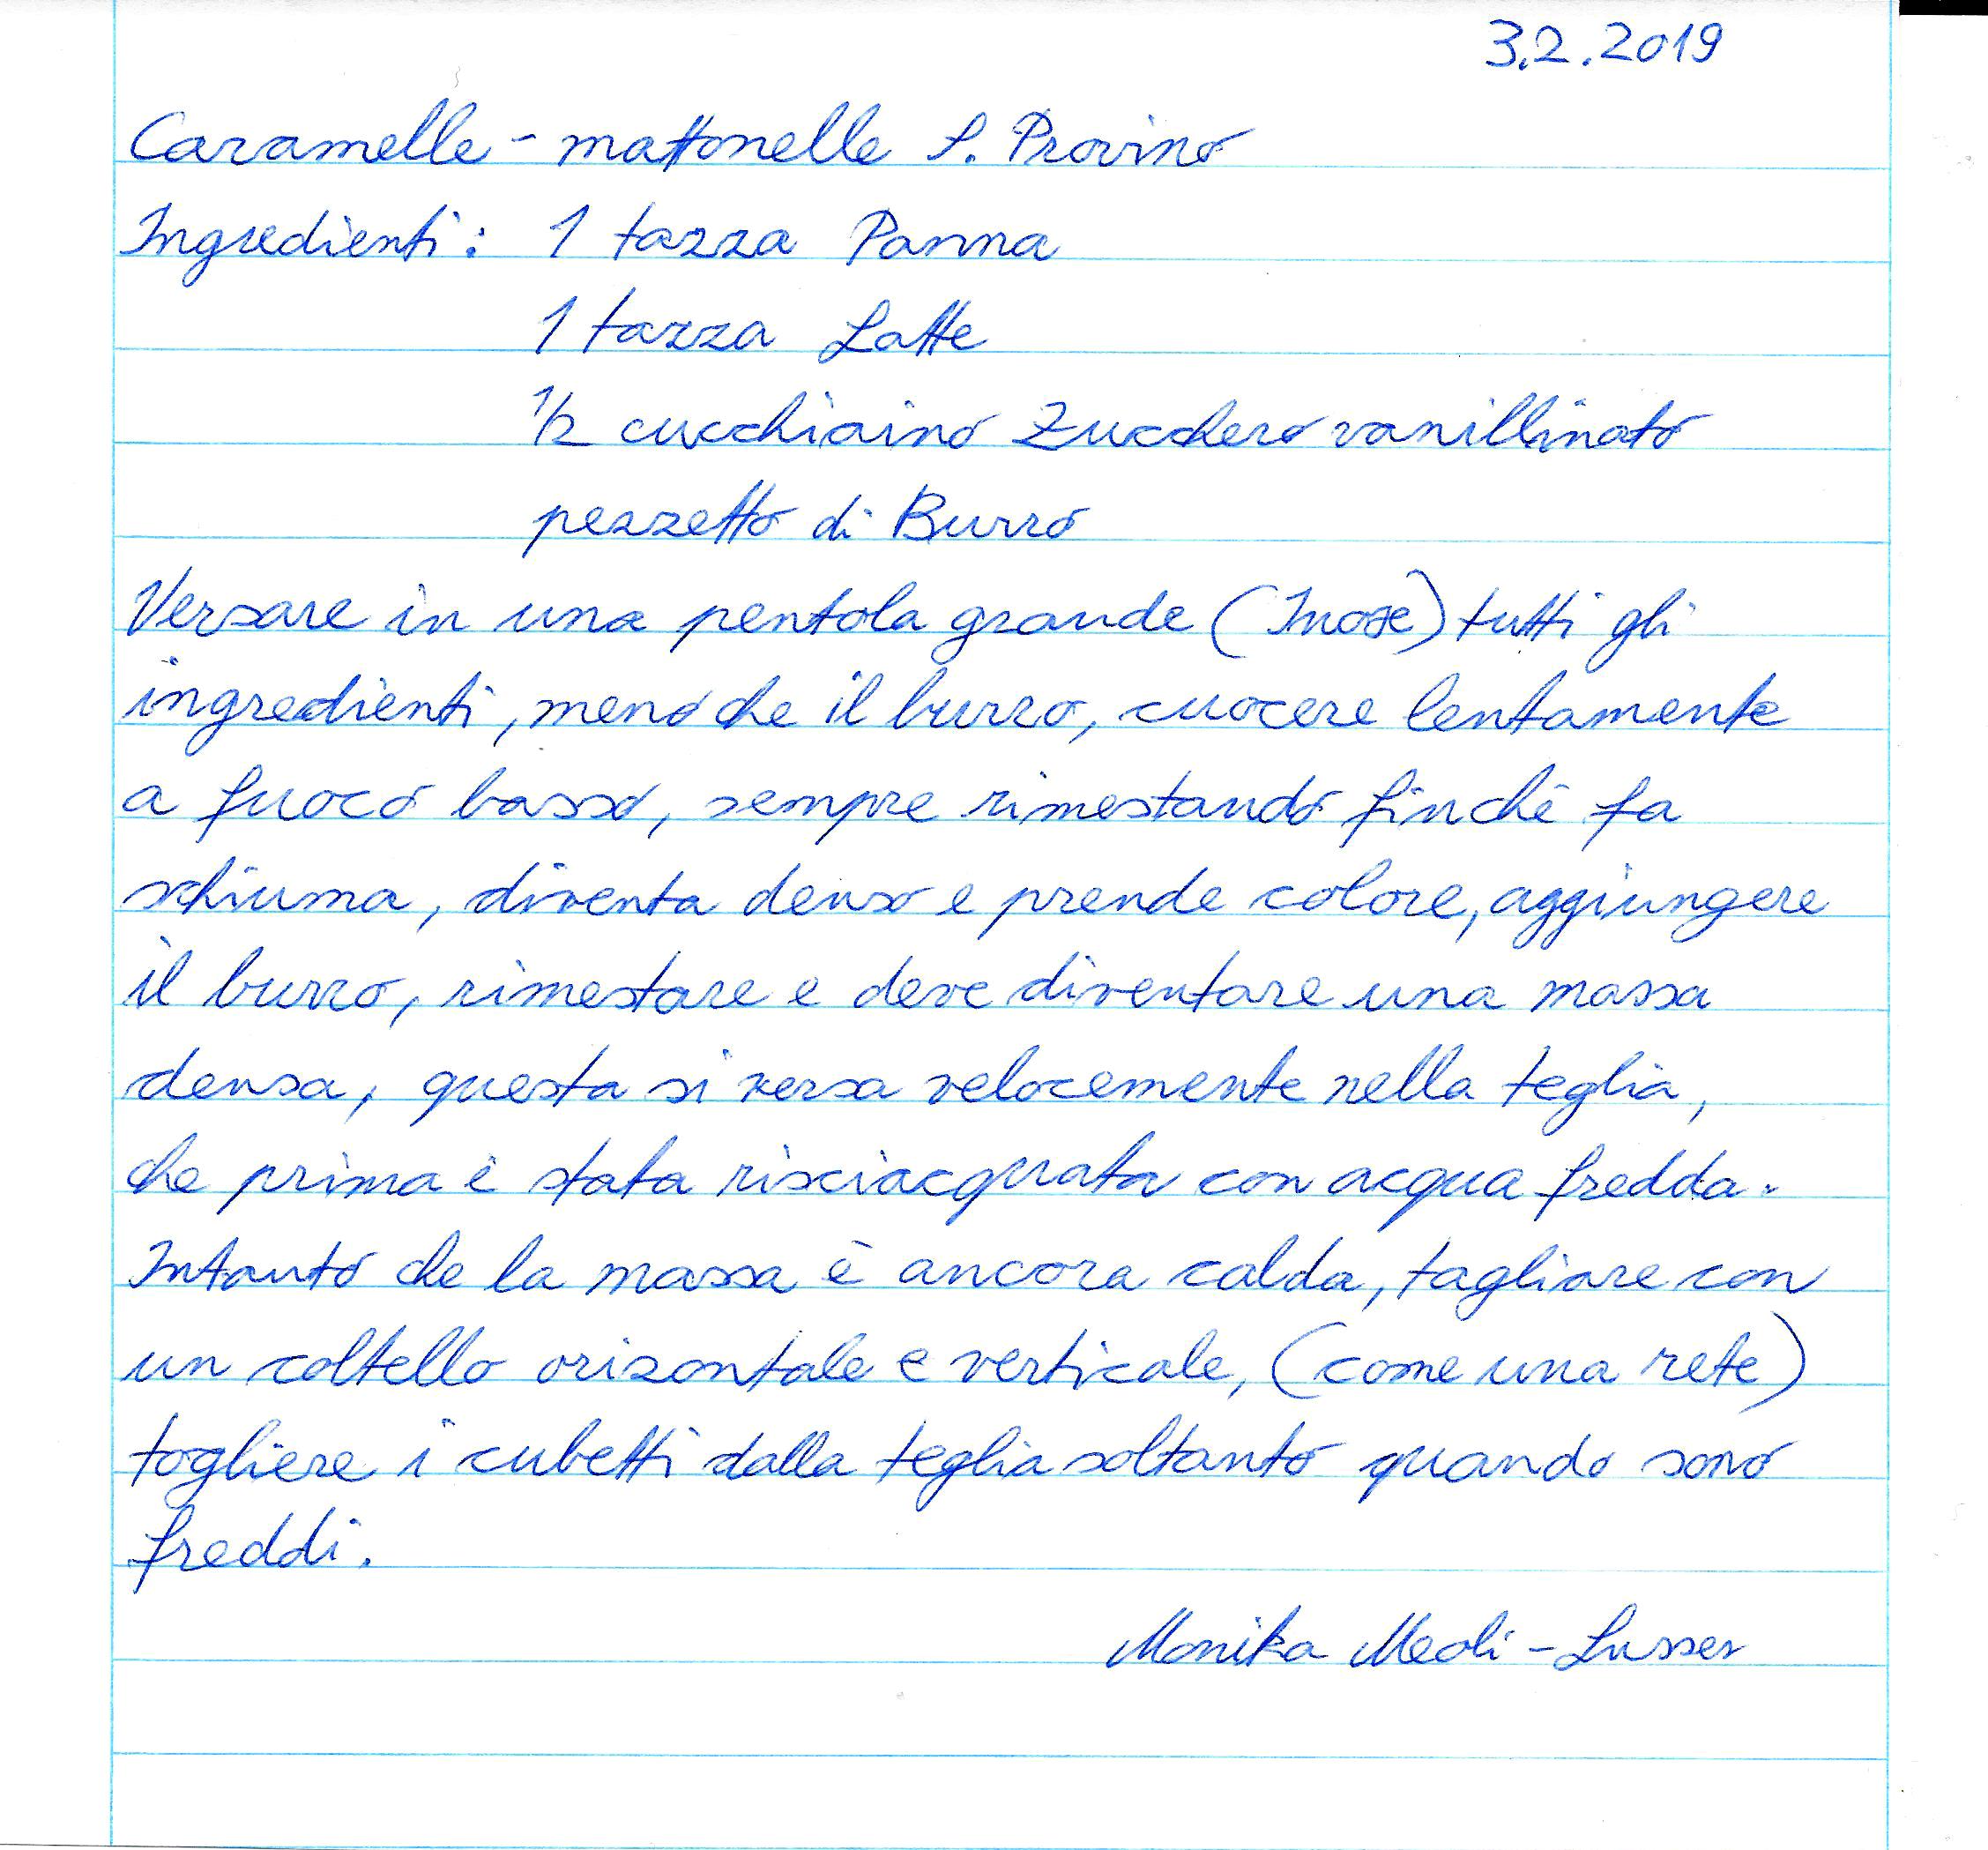 3.2.2019
Caramelle - mattonelle S. Provino
Ingredienti: 1 tazza Panna
1 tazza Latte
1/2 cucchiaino Zucchero vanillinato
pezzetto di Burro
Versare in una pentola grande (Inox) tutti gli
ingredienti, meno che il burro, cuocere lentamente
a fuoco basso, sempre rimestando finchè fa
schiuma, diventa denso e prende colore, aggiungere
il burro, rimestare e deve diventare una massa
densa, questa si versa velocemente nella teglia,
che prima è stata risciacquata con acqua fredda.
Intanto che la massa è ancora calda, tagliare con
un coltello orizontale e verticale, (come una rete)
togliere i cubetti dalla teglia soltanto quando sono
freddi.
Monika Meoli - Lusser